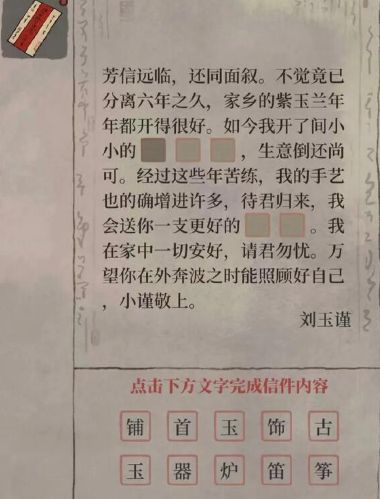 芳信远临，还同面叙。不觉竟已
分离六年之久，家乡的紫玉兰年
年都开得很好。如今我开了间小
小的，生意倒还尚
可。经过这些年苦练，我的手艺
也的确增进许多，待君归来，我
会送你一支更好的。我
在家中一切安好，请君勿忧。万
望你在外奔波之时能照顾好自己
，小谨敬上。
刘玉谨
点击下方文字完成信件内容
铺 首 玉 饰 古
玉 器 炉 笛 筝